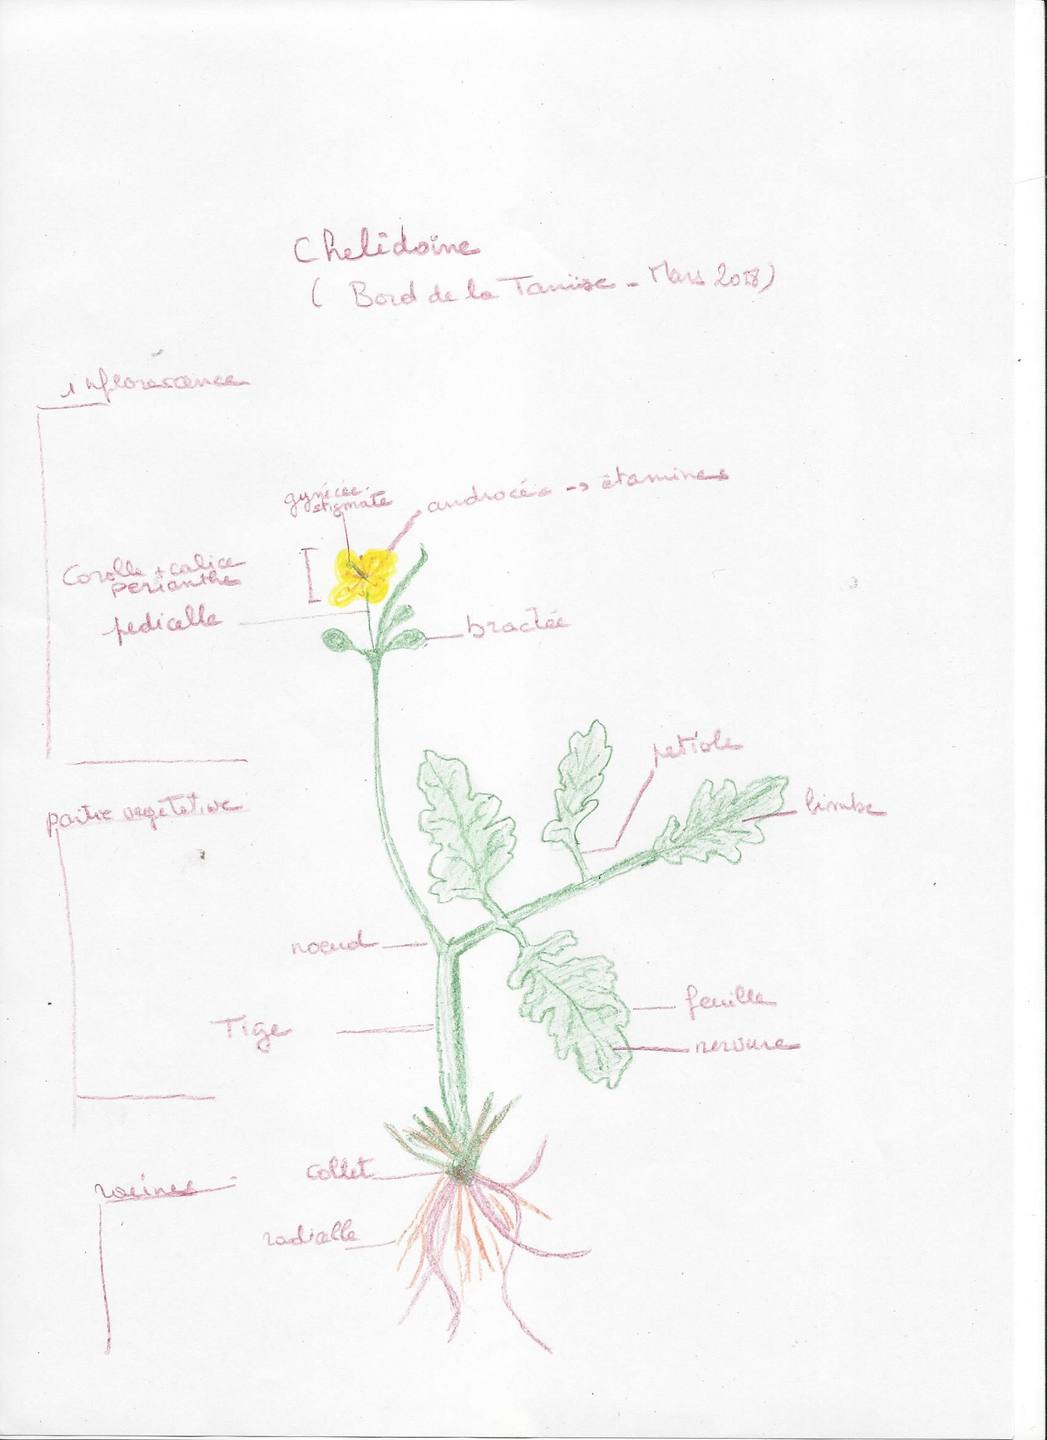 Chelidoine
( Bord de la Tamise - Mars 2018)
inflorescence
gynécée
stigmate
androcée -> étamines
Corolle + calice
perianthe
pedicelle
bractée
petiole
limbe
partie vegetative
noeud
feuille
Tige
nervure
collet
racines
radicelle